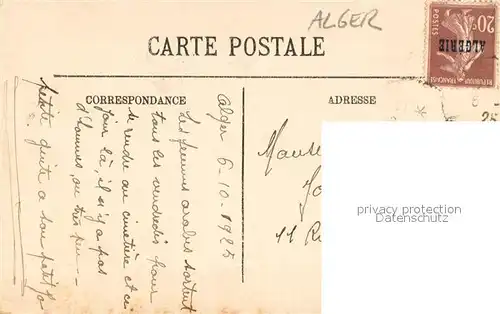 ALGER
CARTE POSTALE
20c
POSTES
ALGERIE
REPUBLIQUE FRANÇAISE
CORRESPONDANCE
ADRESSE
Alger 6-10-1925
Les femmes arabes sortent
tous les vendredis pour
se rendre au cimetière et ce
jour là, il n'y a pas
d'hommes, ou très peu
petite
a son petit
11 R
privacy protection
Datenschutz
25